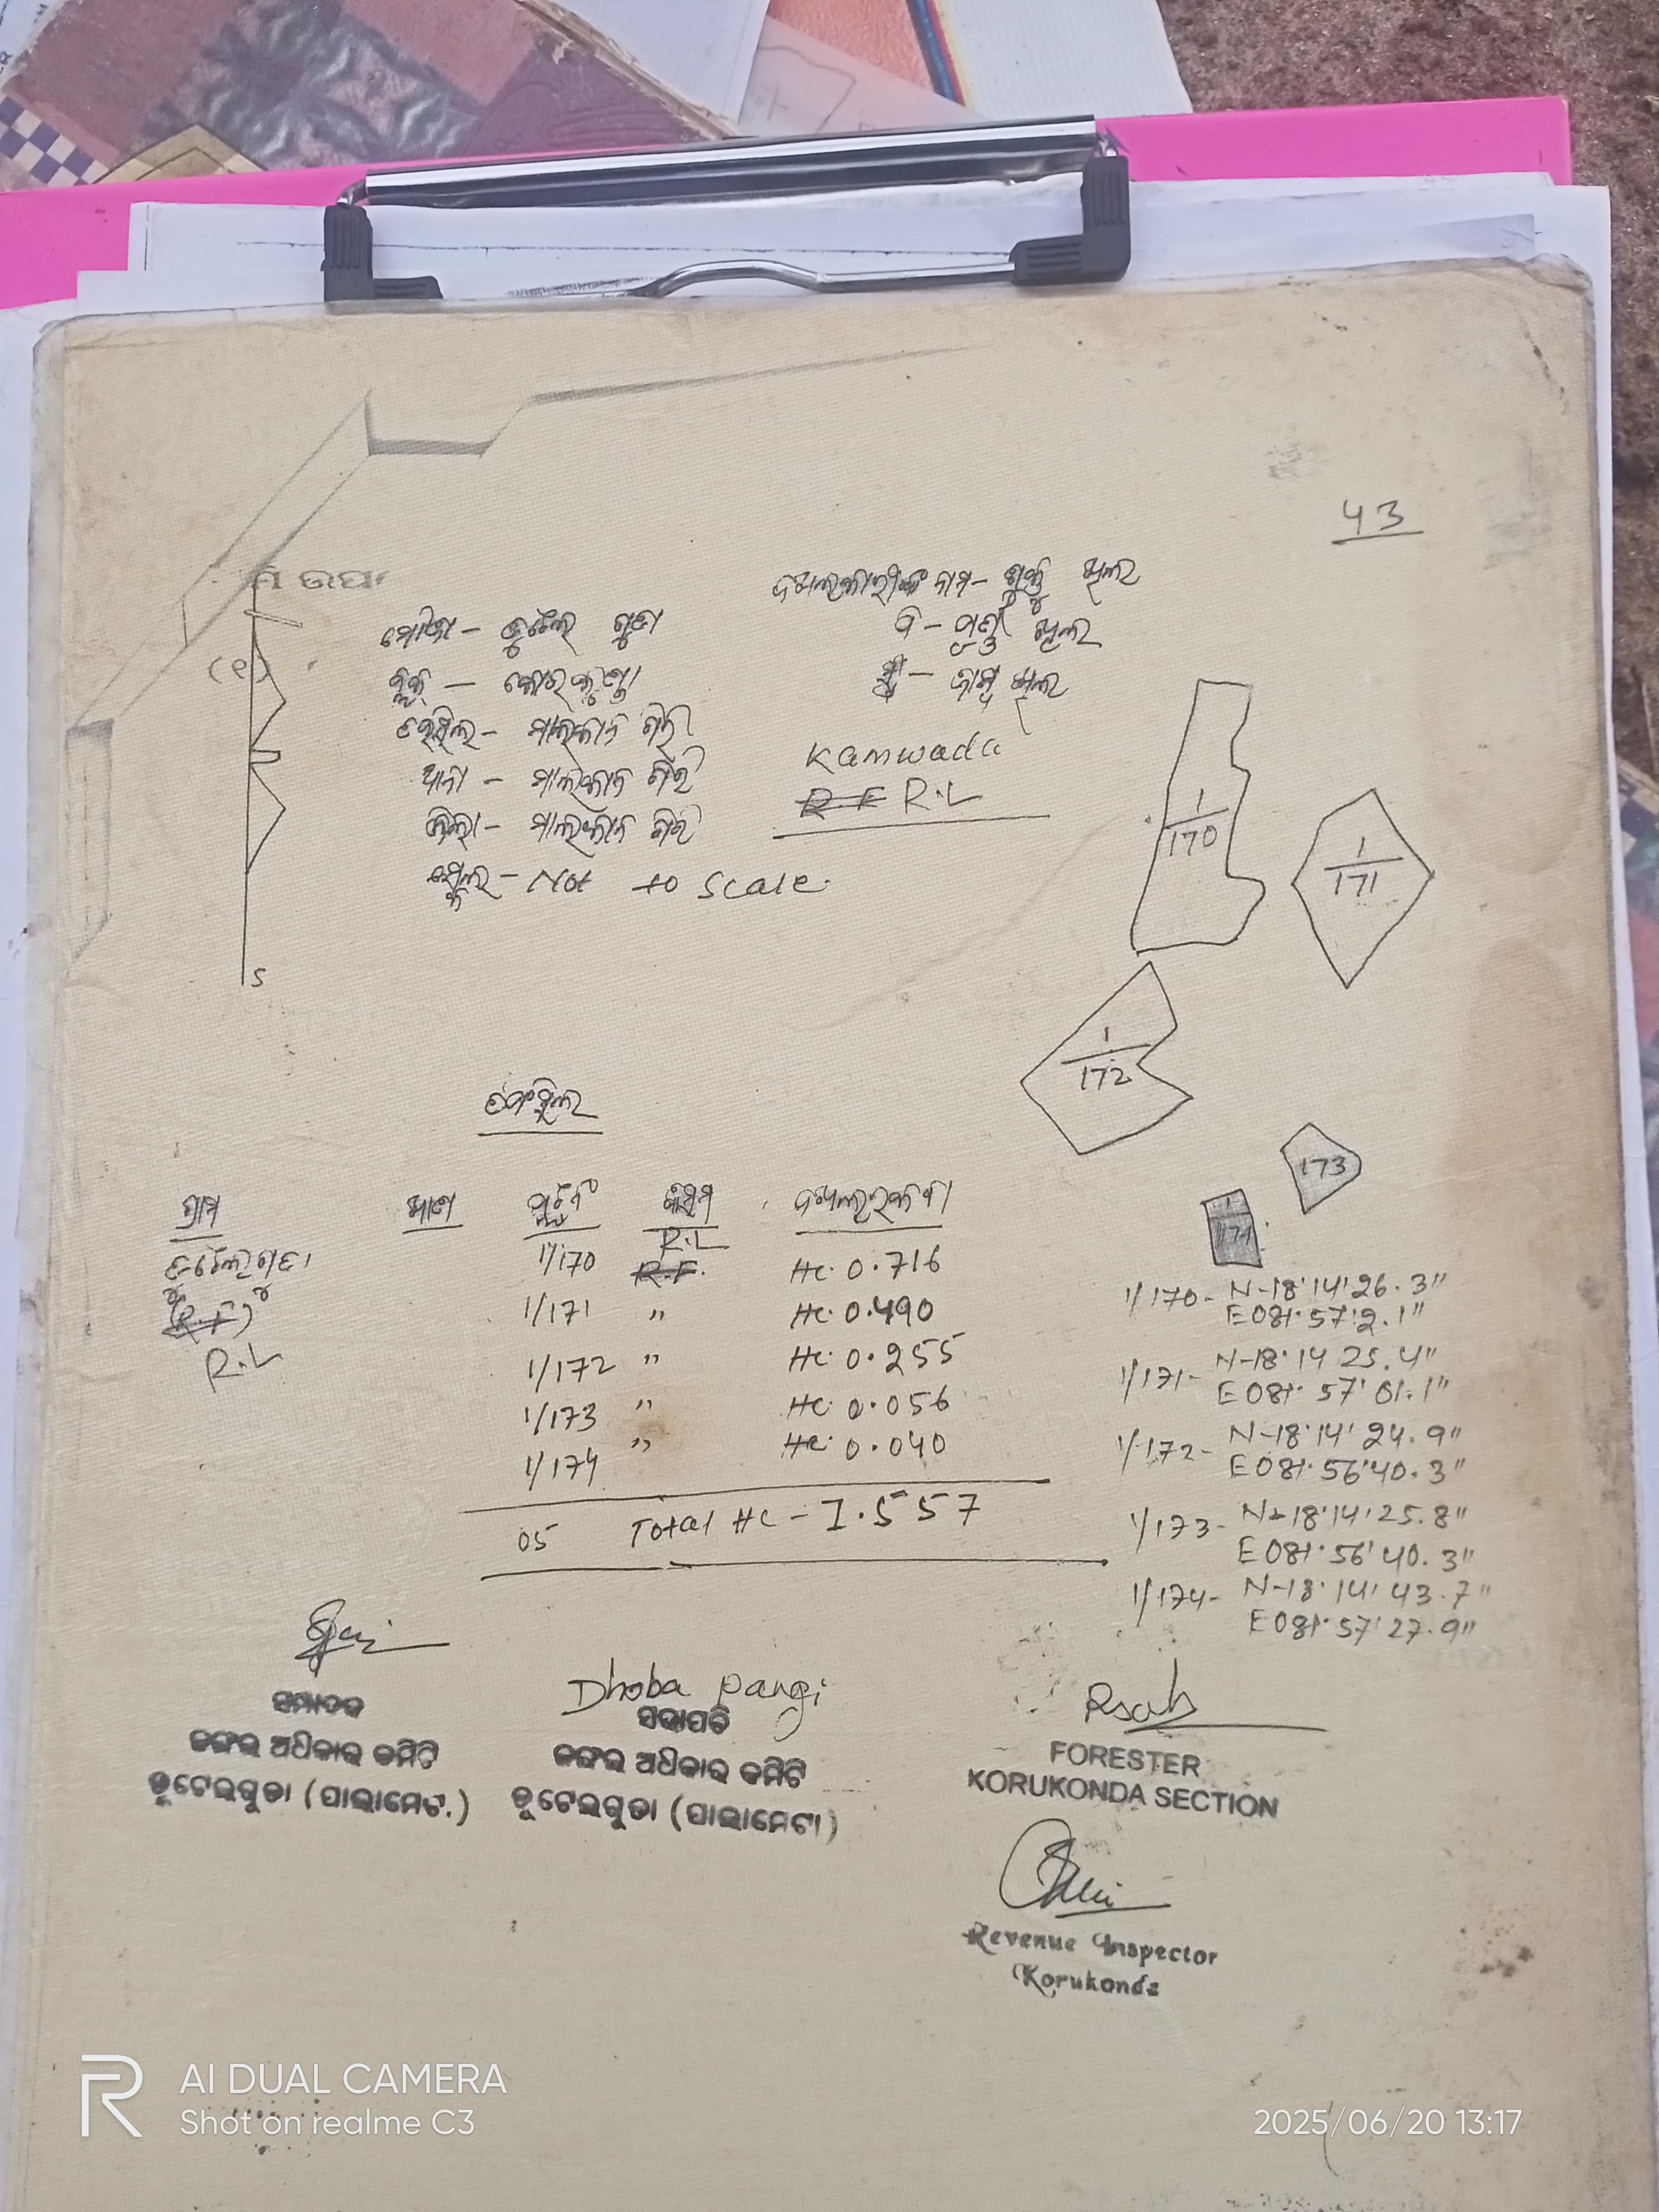 43
ମି ଉପ
(୧)
S
ମୌଜା - ଡୁଟେଲ ଗୁଡା
ବ୍ଲକ୍ - କୋରକୁଣ୍ଡା
ତହସିଲ - ମାଲକାନ ଗିରି
ଥାନା - ମାଲକାନ ଗିରି
ଜିଲ୍ଲା - ମାଲକାନ ଗିରି
ସ୍କେଲ - Not to Scale.
ଦଖଲକାରୀଙ୍କ ନାମ - ଖିଲ
ପି - ଖିଲ
ସ୍ତ୍ରୀ - ଖିଲ
Kamwada
R.F R.L
1/170
1/171
1/172
173
1/174
ତଫସିଲ
ଗ୍ରାମ ପ୍ଲଟନଂ କିସମ ଦଖଲରକବା
ଡୁଟେଲଗୁଡା 1/170 R.L R.F. Hc. 0.716
(R.F) 1/171 " Hc. 0.490
R.L 1/172 " Hc. 0.255
1/173 " Hc. 0.056
1/174 " Hc. 0.040
05 Total Hc - 1.557
1/170 - N-18°14'26.3"
E 081°57'2.1"
1/171 - N-18°14 25.4"
E 081° 57' 01.1"
1/172 - N-18°14' 24.9"
E 081°56'40.3"
1/173 - N-18°14'25.8"
E 081°56'40.3"
1/174 - N-18°14' 43.7"
E 081°57'27.9"
ସମ୍ପାଦକ
ଜଙ୍ଗଲ ଅଧିକାର କମିଟି
ଡୁଟେଲଗୁଡା (ପାଲାମେଟ.)
Dhoba Pangi
ସଭାପତି
ଜଙ୍ଗଲ ଅଧିକାର କମିଟି
ଡୁଟେଲଗୁଡା (ପାଲାମେଟା)
FORESTER
KORUKONDA SECTION
Revenue Inspector
Korukonda
AI DUAL CAMERA
Shot on realme C3
2025/06/20 13:17